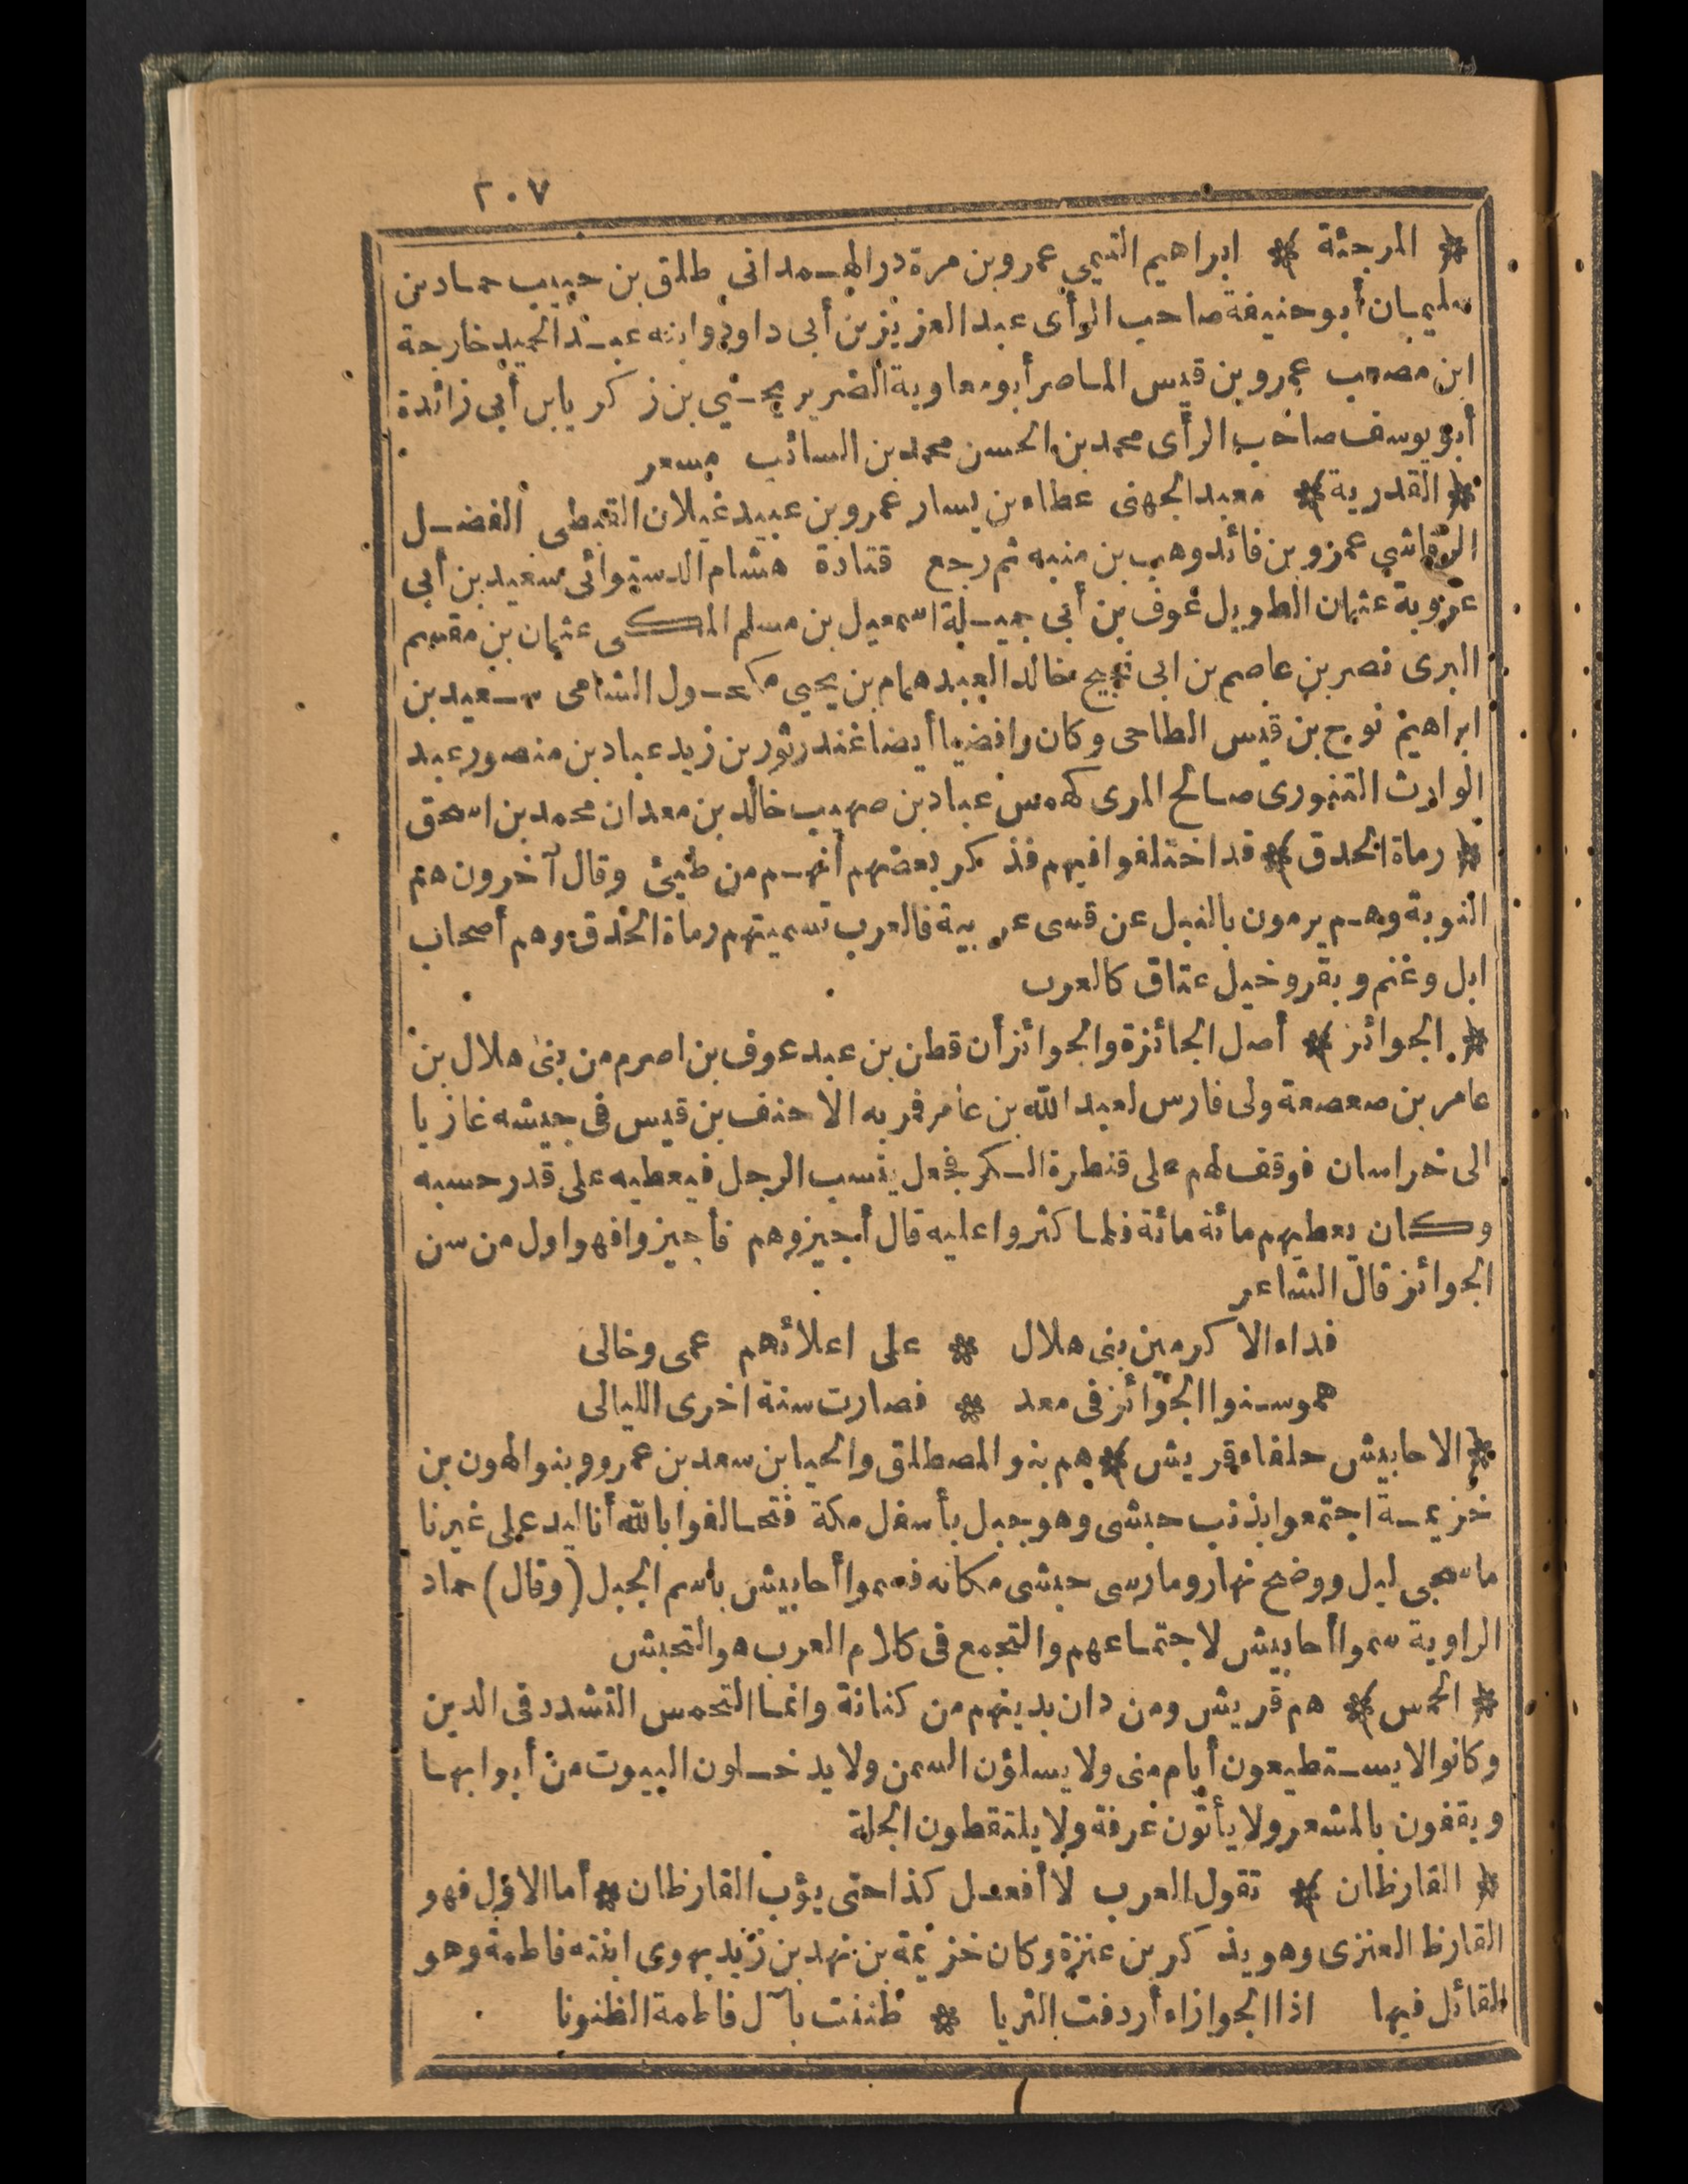 ٢٠٧
* المرجئة * ابراهيم التيمي عمرو بن مرة ذر الهمداني طلق بن حبيب حماد بن
سليمان أبو حنيفة صاحب الرأى عبد العزيز بن أبى داود وابنه عبد الحميد خارجة
ابن مصعب عمرو بن قيس الماصر أبو معاوية الضرير يحيي بن زكريا بن أبى زائدة
أبو يوسف صاحب الرأى محمد بن الحسن محمد بن السائب مسعر
* القدرية * معبد الجهنى عطاء بن يسار عمرو بن عبيد غيلان القبطى الفضل
الرقاشي عمرو بن فائد وهب بن منبه ثم رجع قتادة هشام الدستوائى سعيد بن أبى
عروبة عثمان الطويل عوف بن أبى جميلة اسمعيل بن مسلم المكى عثمان بن مقسم
البرى نصر بن عاصم بن ابى نجيح خالد العبد همام بن يحيي مكحول الشامى سعيد بن
ابراهيم نوح بن قيس الطاحى وكان رافضيا أيضا غندر ثور بن زيد عباد بن منصور عبد
الوارث التنورى صالح المرى كهمس عباد بن صهيب خالد بن معدان محمد بن اسحق
* رماة الحدق * قد اختلفوا فيهم فذكر بعضهم أنهم من طيئ وقال آخرون هم
النوبة وهم يرمون بالنبل عن قسى عربية فالعرب تسميتهم رماة الحدق وهم أصحاب
ابل وغنم وبقر وخيل عتاق كالعرب
* الجوائز * أصل الجائزة والجوائز أن قطن بن عبد عوف بن اصرم من بنى هلال بن
عامر بن صعصعة ولى فارس لعبد الله بن عامر فمر به الاحنف بن قيس فى جيشه غازيا
الى خراسان فوقف لهم على قنطرة الكر فجعل ينسب الرجل فيعطيه على قدر حسبه
وكان يعطيهم مائة مائة فلما كثروا عليه قال أجيزوهم فأجيزوا فهو اول من سن
الجوائز قال الشاعر
فداء الاكرمين بنى هلال * على اعلائهم عمى وخالى
همو سنوا الجوائز فى معد * فصارت سنة اخرى الليالى
* الاحابيش حلفاء قريش * هم بنو المصطلق والحيا بن سعد بن عمرو وبنو الهون بن
خزيمة اجتمعوا بذنب حبشى وهو جبل بأسفل مكة فتحالفوا بالله أنا ليد على غيرنا
ما سجى ليل ووضح نهار وما رسى حبشى مكانه فسموا أحابيش باسم الجبل (وقال) حماد
الراوية سموا أحابيش لاجتماعهم والتجمع فى كلام العرب هو التحبش
* الحمس * هم قريش ومن دان بدينهم من كنانة وانما التحمس التشدد فى الدين
وكانوا لا يستطيعون أيام منى ولا يسلؤن السمن ولا يدخلون البيوت من أبوابها
ويقفون بالمشعر ولا يأتون عرفة ولا يلتقطون الجلة
* القارظان * تقول العرب لا أفعل كذا حتى يؤب القارظان * أما الاول فهو
القارظ العنزى وهو يذكر بن عنزة وكان خزيمة بن نهد بن زيد يهوى ابنته فاطمة وهو
القائل فيها اذا الجوازاء أردفت الثريا * ظننت بآل فاطمة الظنونا